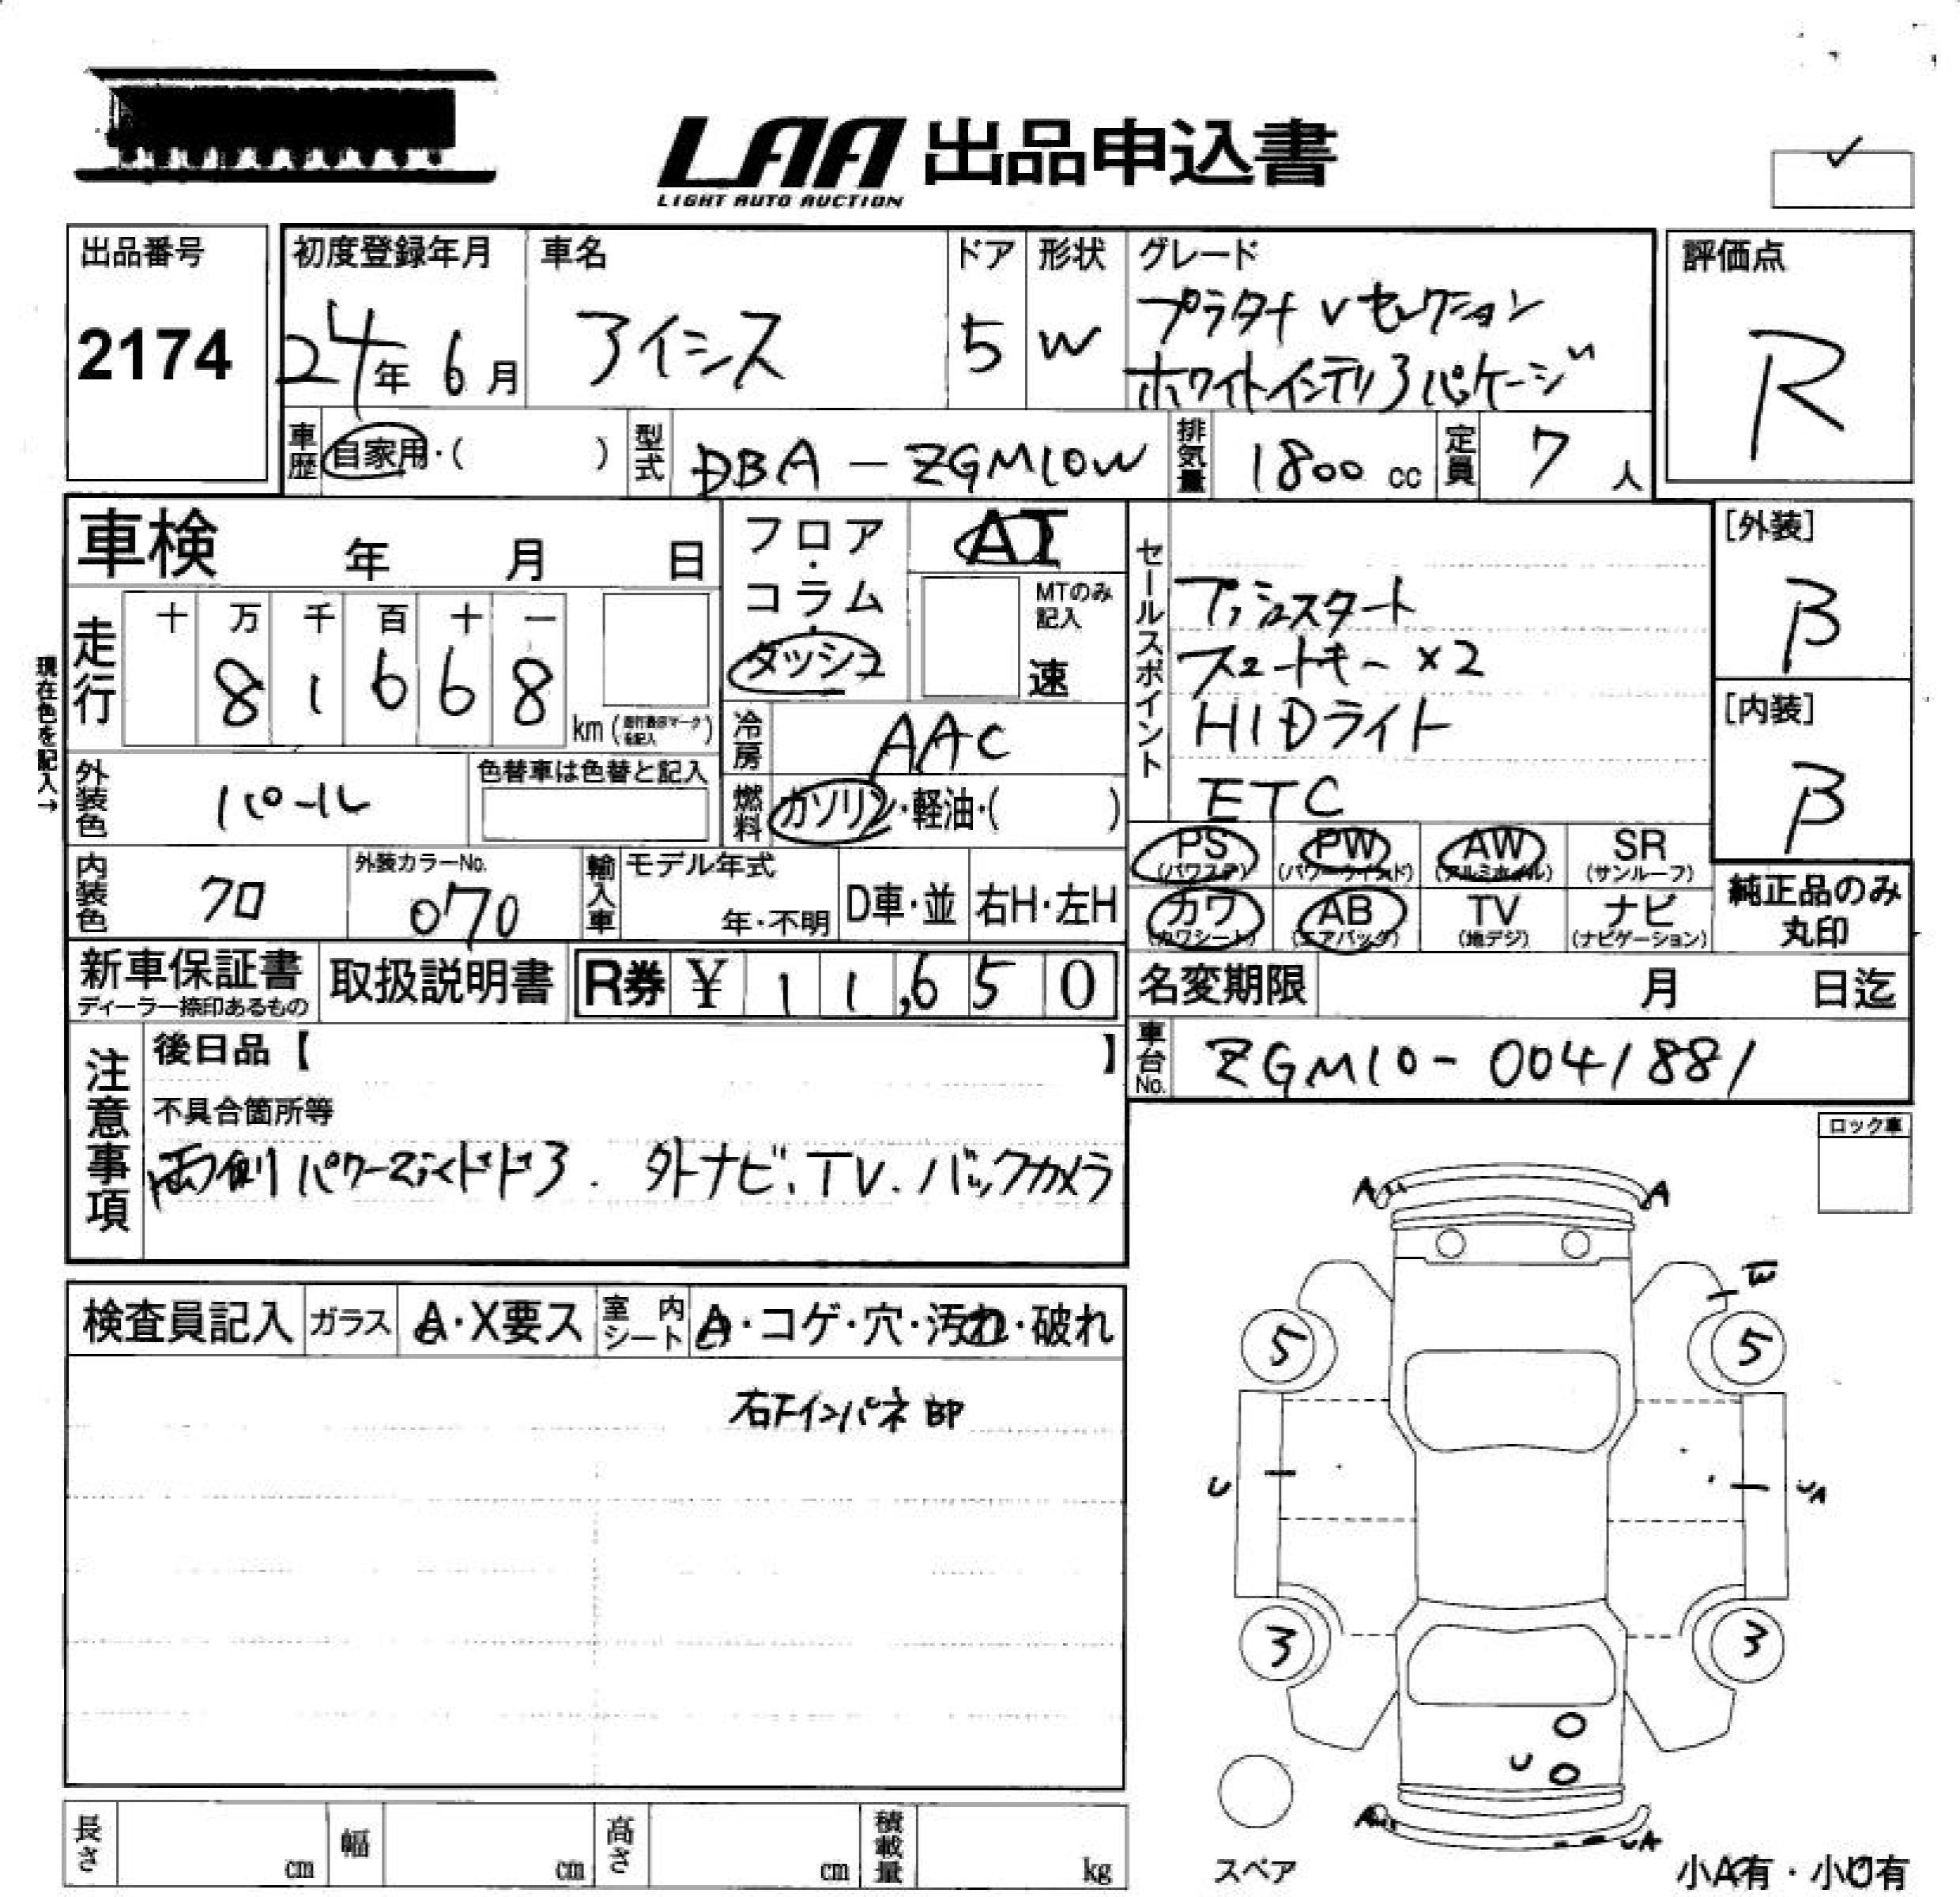 LAA 出品申込書
LIGHT AUTO AUCTION
出品番号
2174
初度登録年月
24年 6月
車名
アイシス
ドア
5
形状
W
グレード
プラタナ Vセレクション
ホワイトインテリアパッケージ
評価点
R
車歴
自家用・( )
型式
DBA－ZGM10W
排気量
1800 cc
定員
7 人
車検 年 月 日
フロア・コラム・ダッシュ
AT
MTのみ記入
速
走行
十 万 千 百 十 一
8 1 6 6 8
km (走行表示マークを記入)
現在色を記入→
冷房
AAC
燃料
ガソリン・軽油・( )
外装色
パール
色替車は色替と記入
内装色
クロ
外装カラーNo.
070
輸入車
モデル年式
年・不明
D車・並
右H・左H
セールスポイント
プッシュスタート
スマートキー ×2
HIDライト
ETC
[外装]
β
[内装]
β
PS (パワステ)
PW (パワーウインド)
AW (アルミホイル)
SR (サンルーフ)
カワ (カワシート)
AB (エアバッグ)
TV (地デジ)
ナビ (ナビゲーション)
純正品のみ丸印
新車保証書
ディーラー捺印あるもの
取扱説明書
R券 ¥ 11,650
名変期限 月 日迄
車台No.
ZGM10-0041881
注意事項
後日品【 】
不具合箇所等
両側パワースライドドア. 外ナビ、TV. バックカメラ
ロック車
検査員記入
ガラス
A・X要ス
室内シート
A・コゲ・穴・汚れ・破れ
右下インパネ部
A A
W
5 5
U UA
3 3
U
UA
長さ cm
幅 cm
高さ cm
積載量 kg
スペア
小A有・小U有